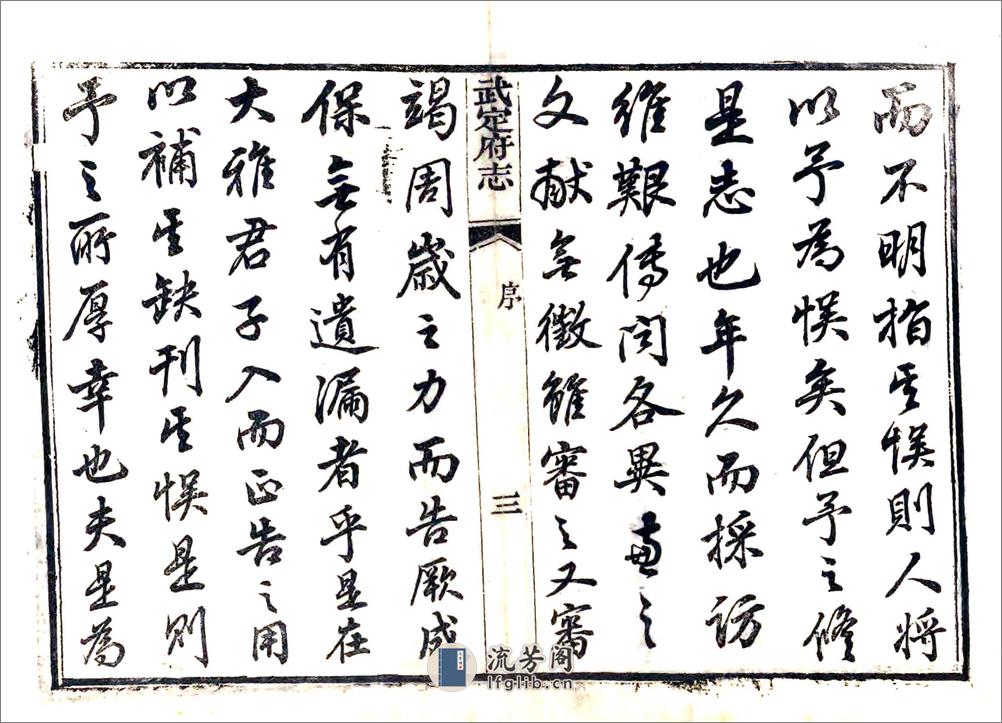 而不明指其悮則人將
以予為悮矣但予之修
是志也年久而採訪
維艱傳聞各異兼之
文献無徵雖審之又審
武定府志
序
三
竭周歲之力而告厥成
保無有遺漏者乎是在
大雅君子入而正告之用
以補其缺刊其悮是則
予之所厚幸也夫是為
流芳阁
lfglib.cn